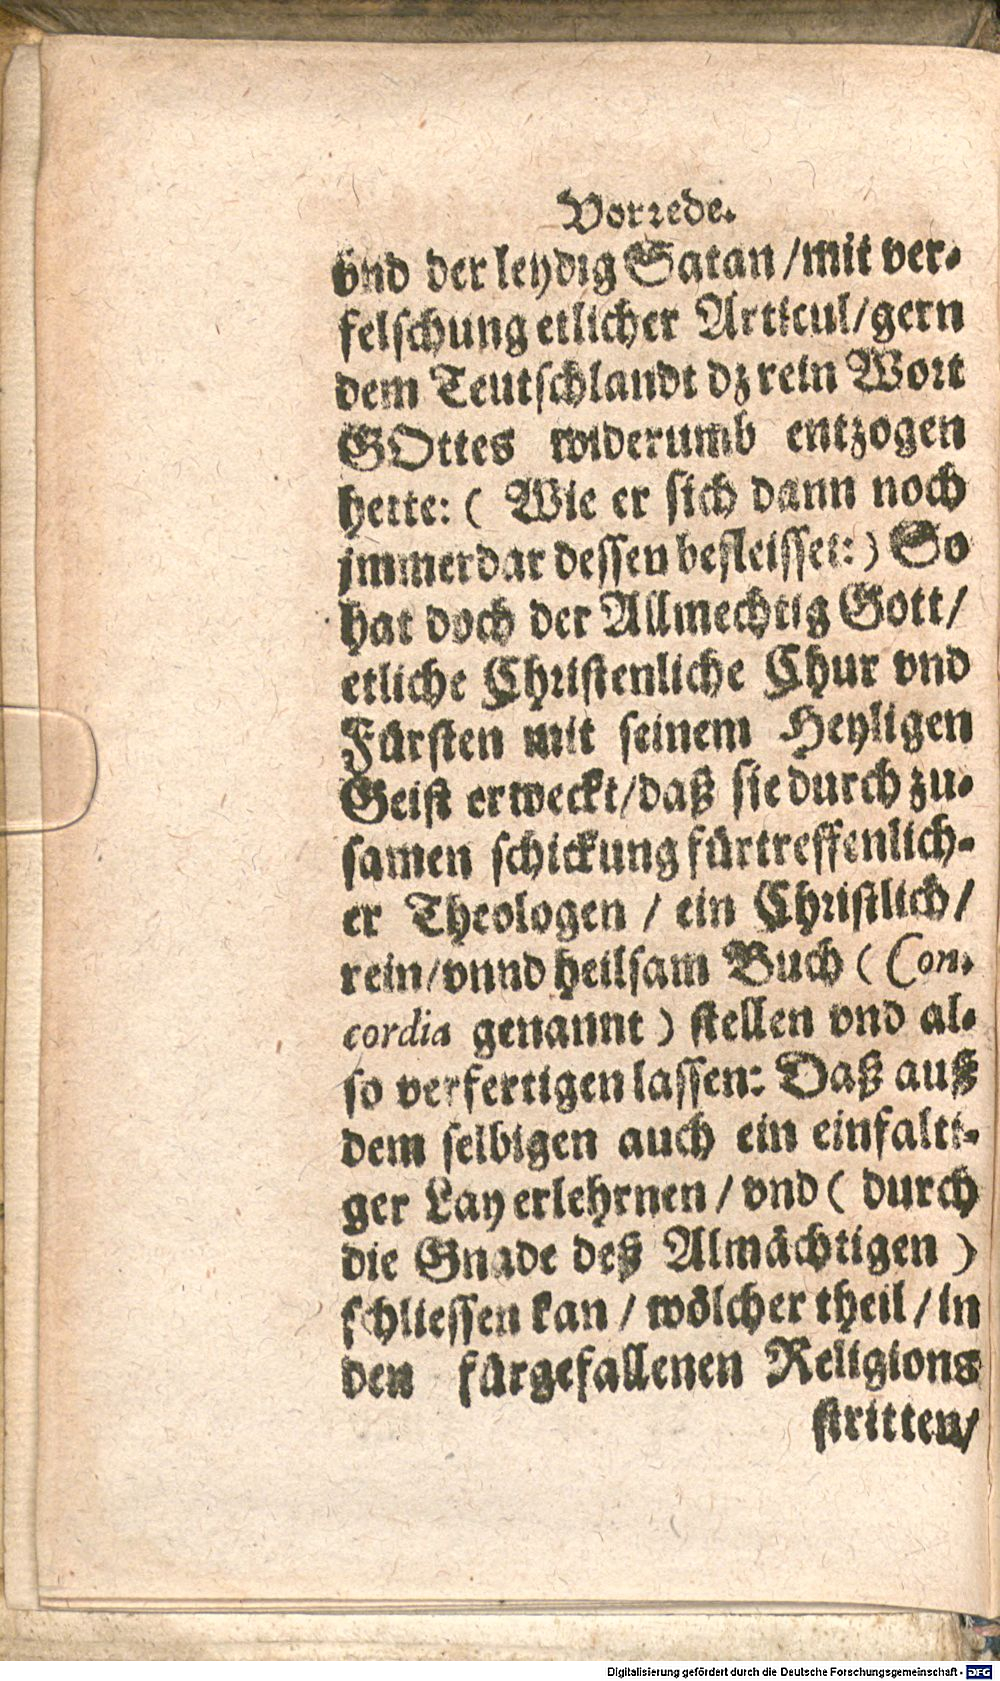 Vorrede.
vnd der leydig Satan / mit ver-
felschung etlicher Articul / gern
dem Teutschlandt dz rein Wort
GOttes widerumb entzogen
hette: ( Wie er sich dann noch
jmmerdar dessen befleisset: ) So
hat doch der Allmechtig Gott /
etliche Christenliche Chur vnd
Fürsten mit seinem Heyligen
Geist erweckt / daß sie durch zu-
samen schickung fürtreffenlich-
er Theologen / ein Christlich /
rein / vnnd heilsam Buch ( Con-
cordia genannt ) stellen vnd al-
so verfertigen lassen: Daß auß
dem selbigen auch ein einfalti-
ger Lay erlehrnen / vnd ( durch
die Gnade deß Almächtigen )
schliessen kan / wölcher theil / in
den fürgefallenen Religions
stritten /
Digitalisierung gefördert durch die Deutsche Forschungsgemeinschaft - DFG